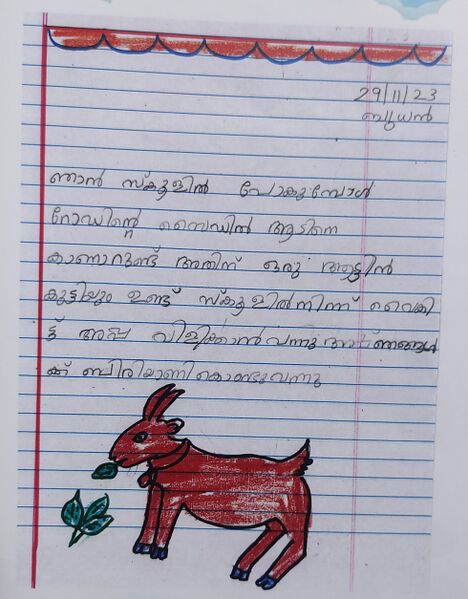 29/11/23
ബുധൻ
ഞാൻ സ്കൂളിൽ പോകുമ്പോൾ
റോഡിന്റെ സൈഡിൽ ആടിനെ
കാണാറുണ്ട് അതിന് ഒരു ആട്ടിൻ
കുട്ടിയും ഉണ്ട് സ്കൂളിൽനിന്ന് വൈകി
ട്ട് അപ്പ വിളിക്കാൻ വന്നു ഞങ്ങൾ
ക്ക് ബിരിയാണി കൊണ്ടുവന്നു